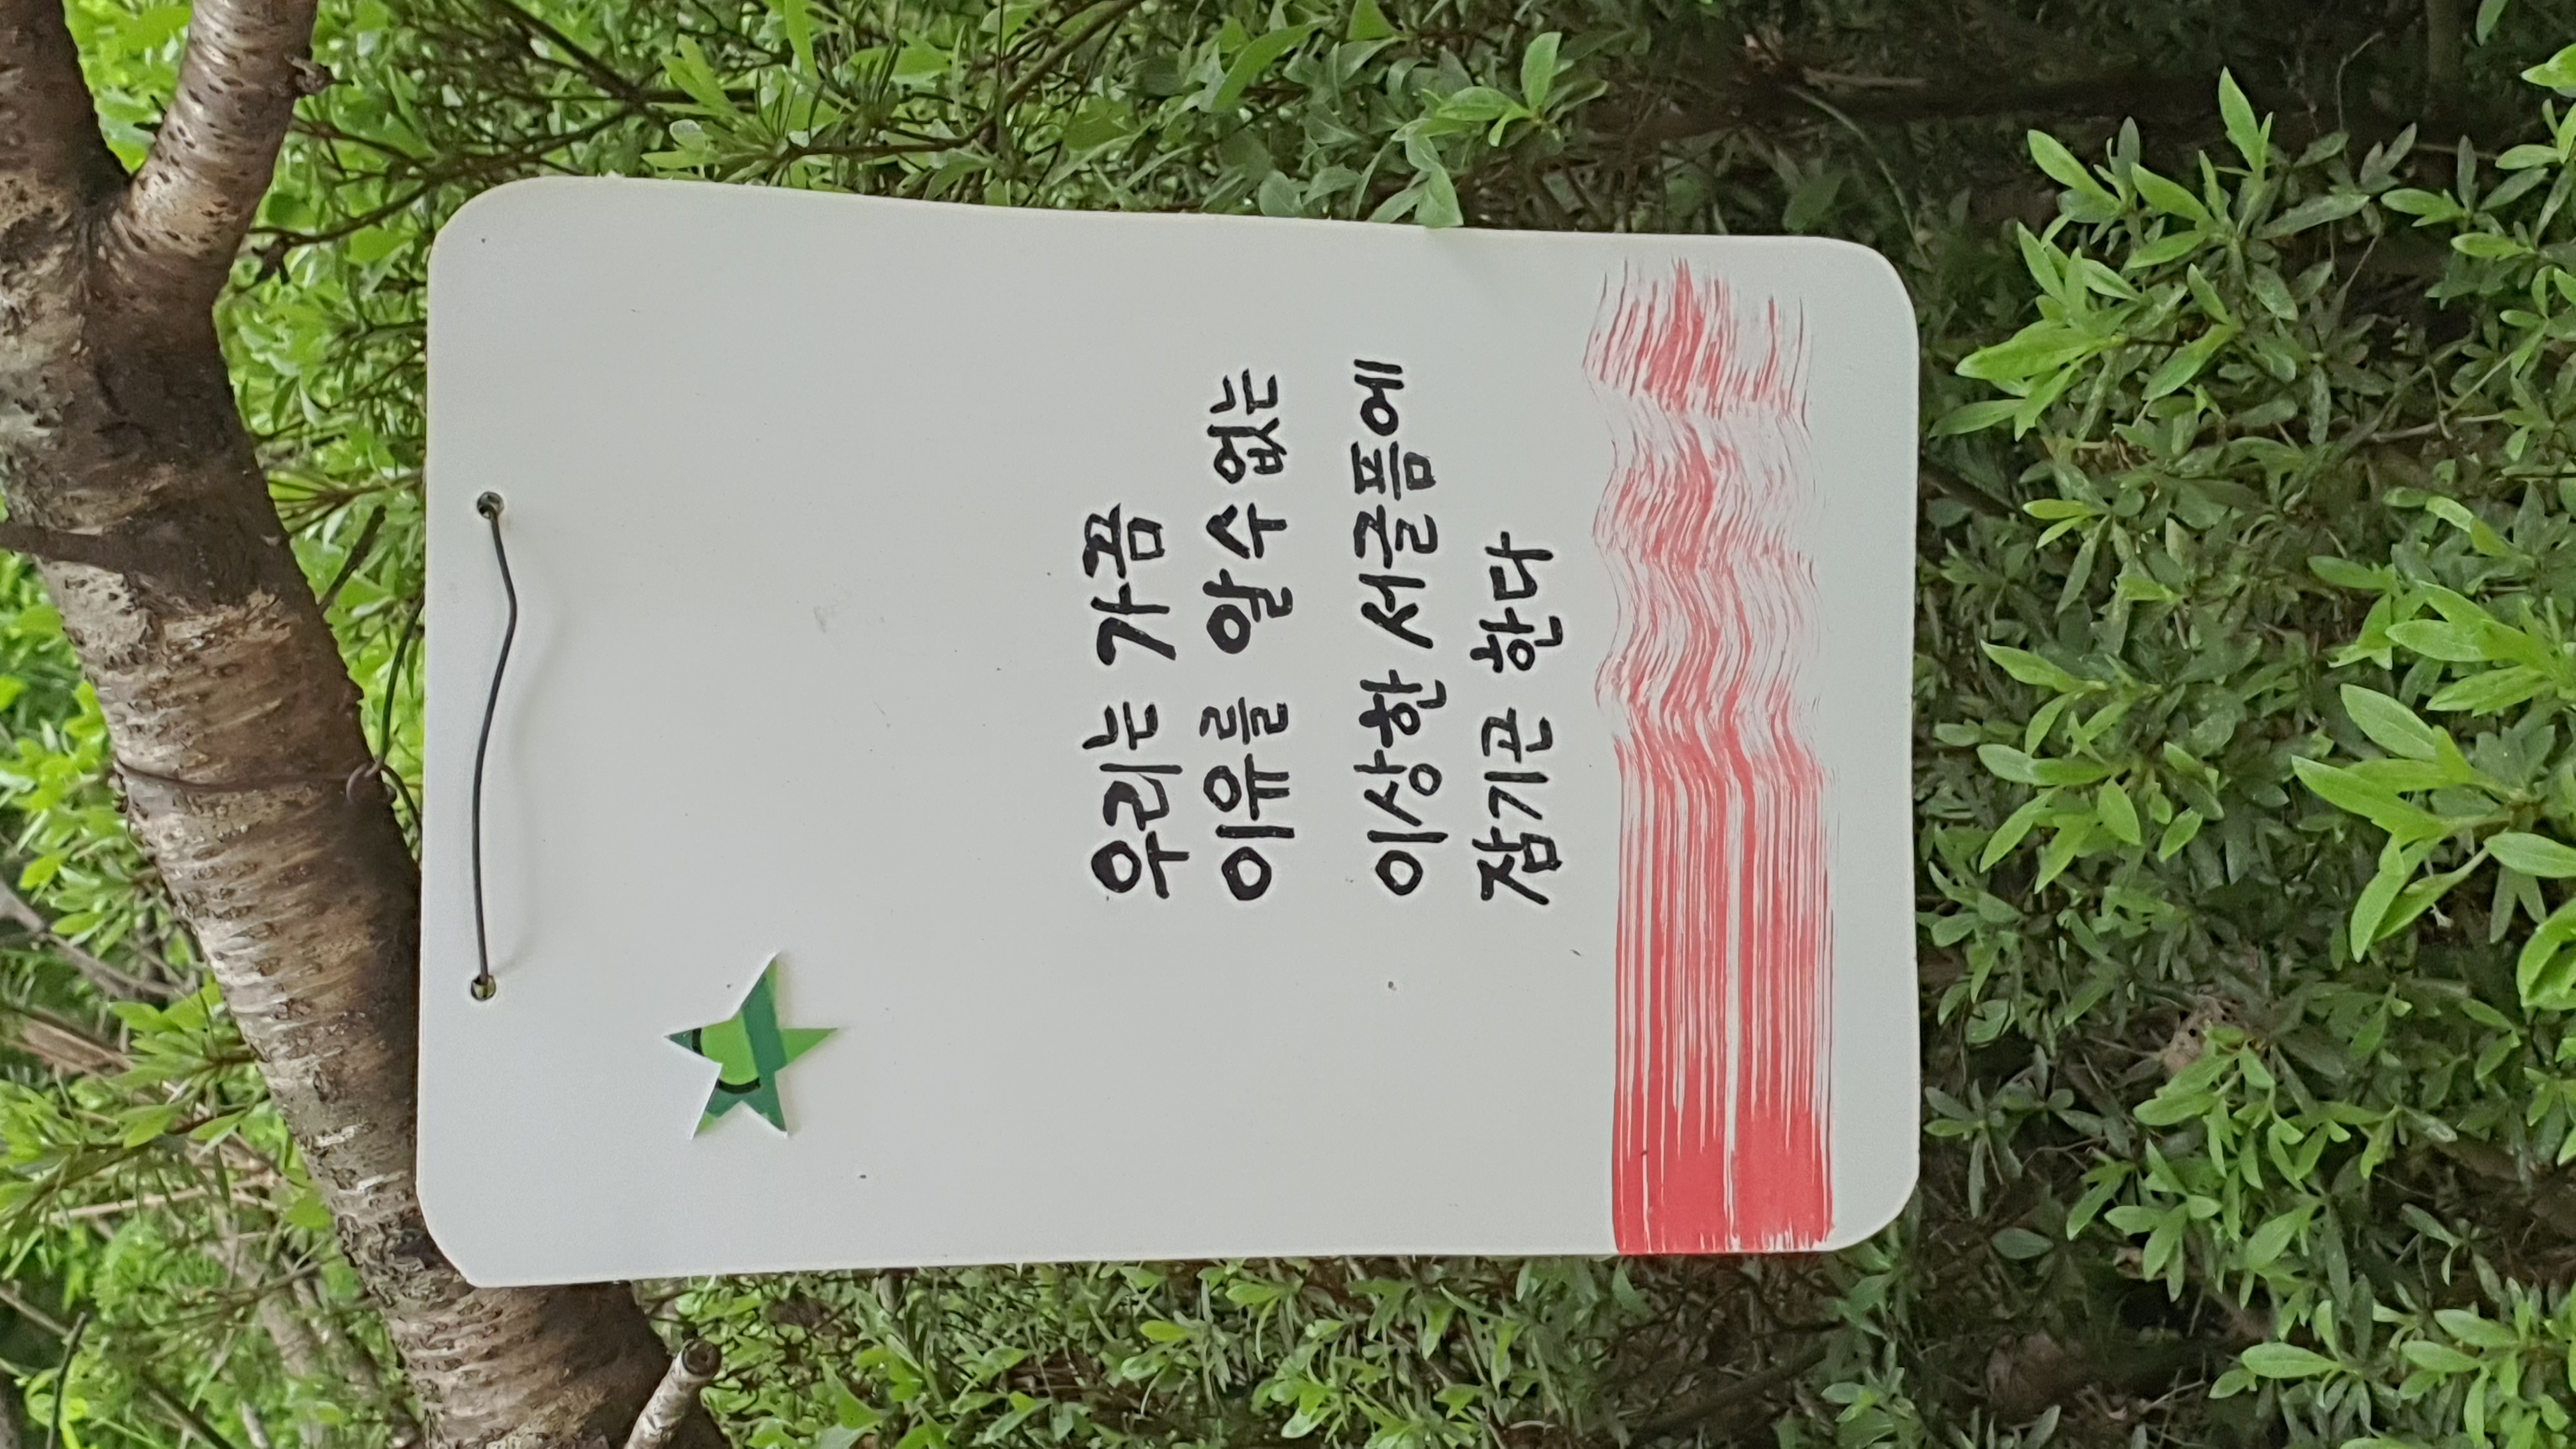 우리는 가끔
이유를 알 수 없는
이상한 서글픔에
잠기곤 한다